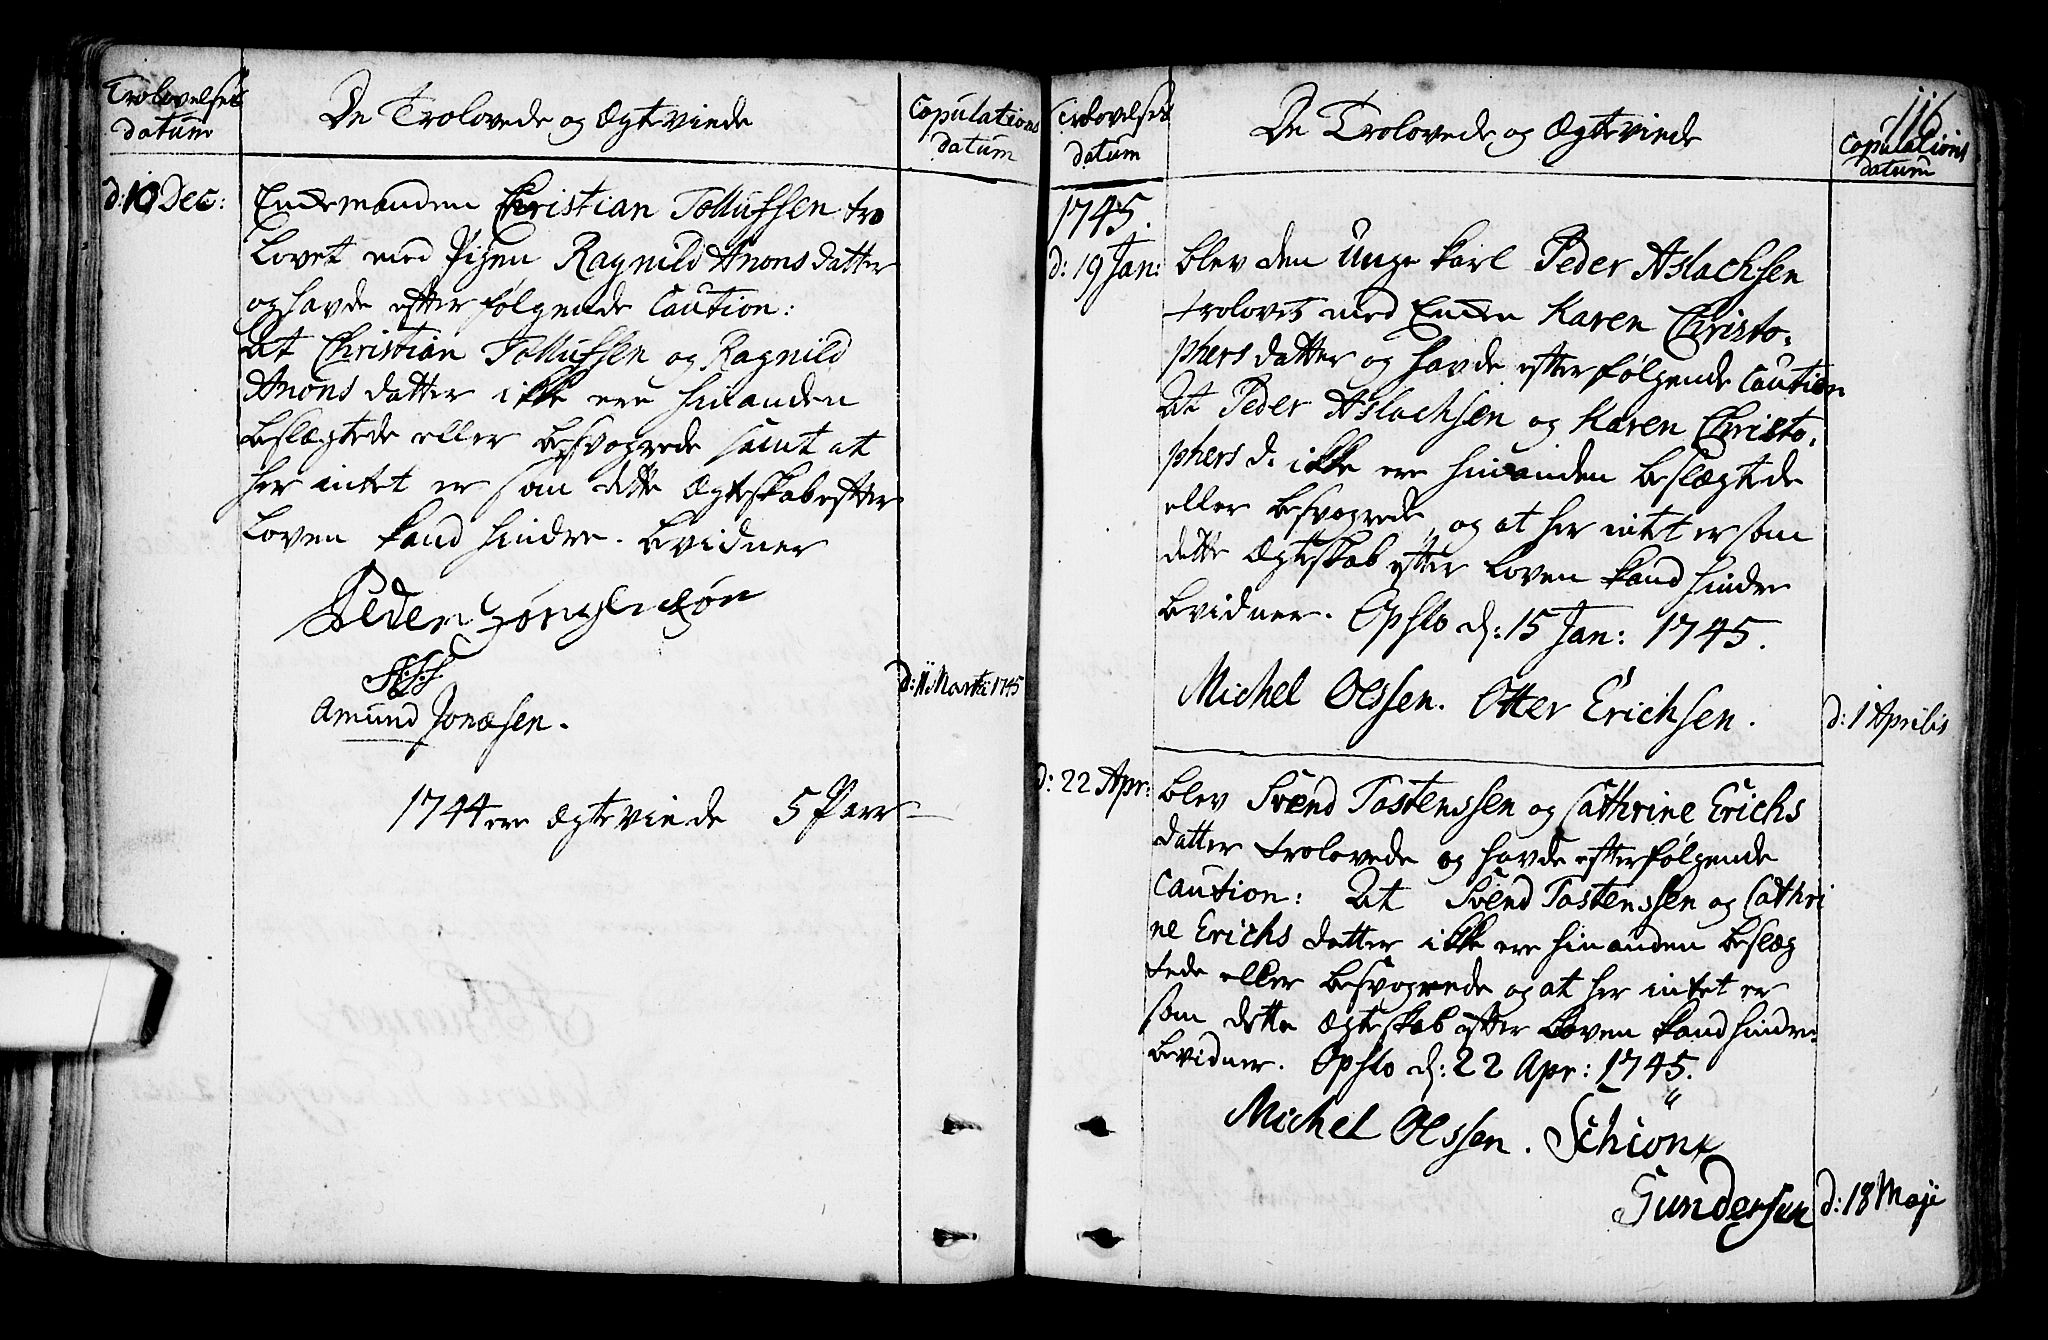 Trolovelses
datum
De Trolovede og Ægteviede
Copulations
datum
d: 10 Dec:
Enckemanden Christian Tollufsen tro
lovet med Pigen Ragnild Anons datter
og havde efterfølgende Caution:
At Christian Tollufsen og Ragnild
Anons datter ikke ere hinanden
beslægtede eller besvogrede samt at
her intet er som dette Ægteskab efter
Loven kand hindre. bevidner
Peder
Amund Jonæsen.
d: 11 Martii 1745
1744 ere ægteviede 5 Parr
116
Trolovelses
datum
De Trolovede og Ægteviede
Copulations
datum
1745.
d: 19 Jan:
blev den unge karl Peder Aslachsen
trolovet med Encken Karen Christo-
phers datter og havde efterfølgende Caution
At Peder Aslachsen og Karen Christo-
phers d. ikke ere hinanden beslægtede
eller besvogrede, og at her intet er som
dette Ægteskab efter Loven kand hindre
bevidner. Opslo d: 15 Jan: 1745.
Michel Olssen. Otter Erichsen.
d: 1 Aprilis
d: 22 Apr:
blev Svend Tostenssen og Cathrine Erichs
datter trolovede og havde efterfølgende
Caution: At Svend Tostenssen og Cathri
ne Erichs datter ikke ere hinanden beslæg
tede eller besvogrede og at her intet er
som dette Ægteskab efter Loven kand hindre
bevidner. Opslo d: 22 Apr: 1745.
Michel Olssen. Schiont
Gundersen
d: 18 Maji